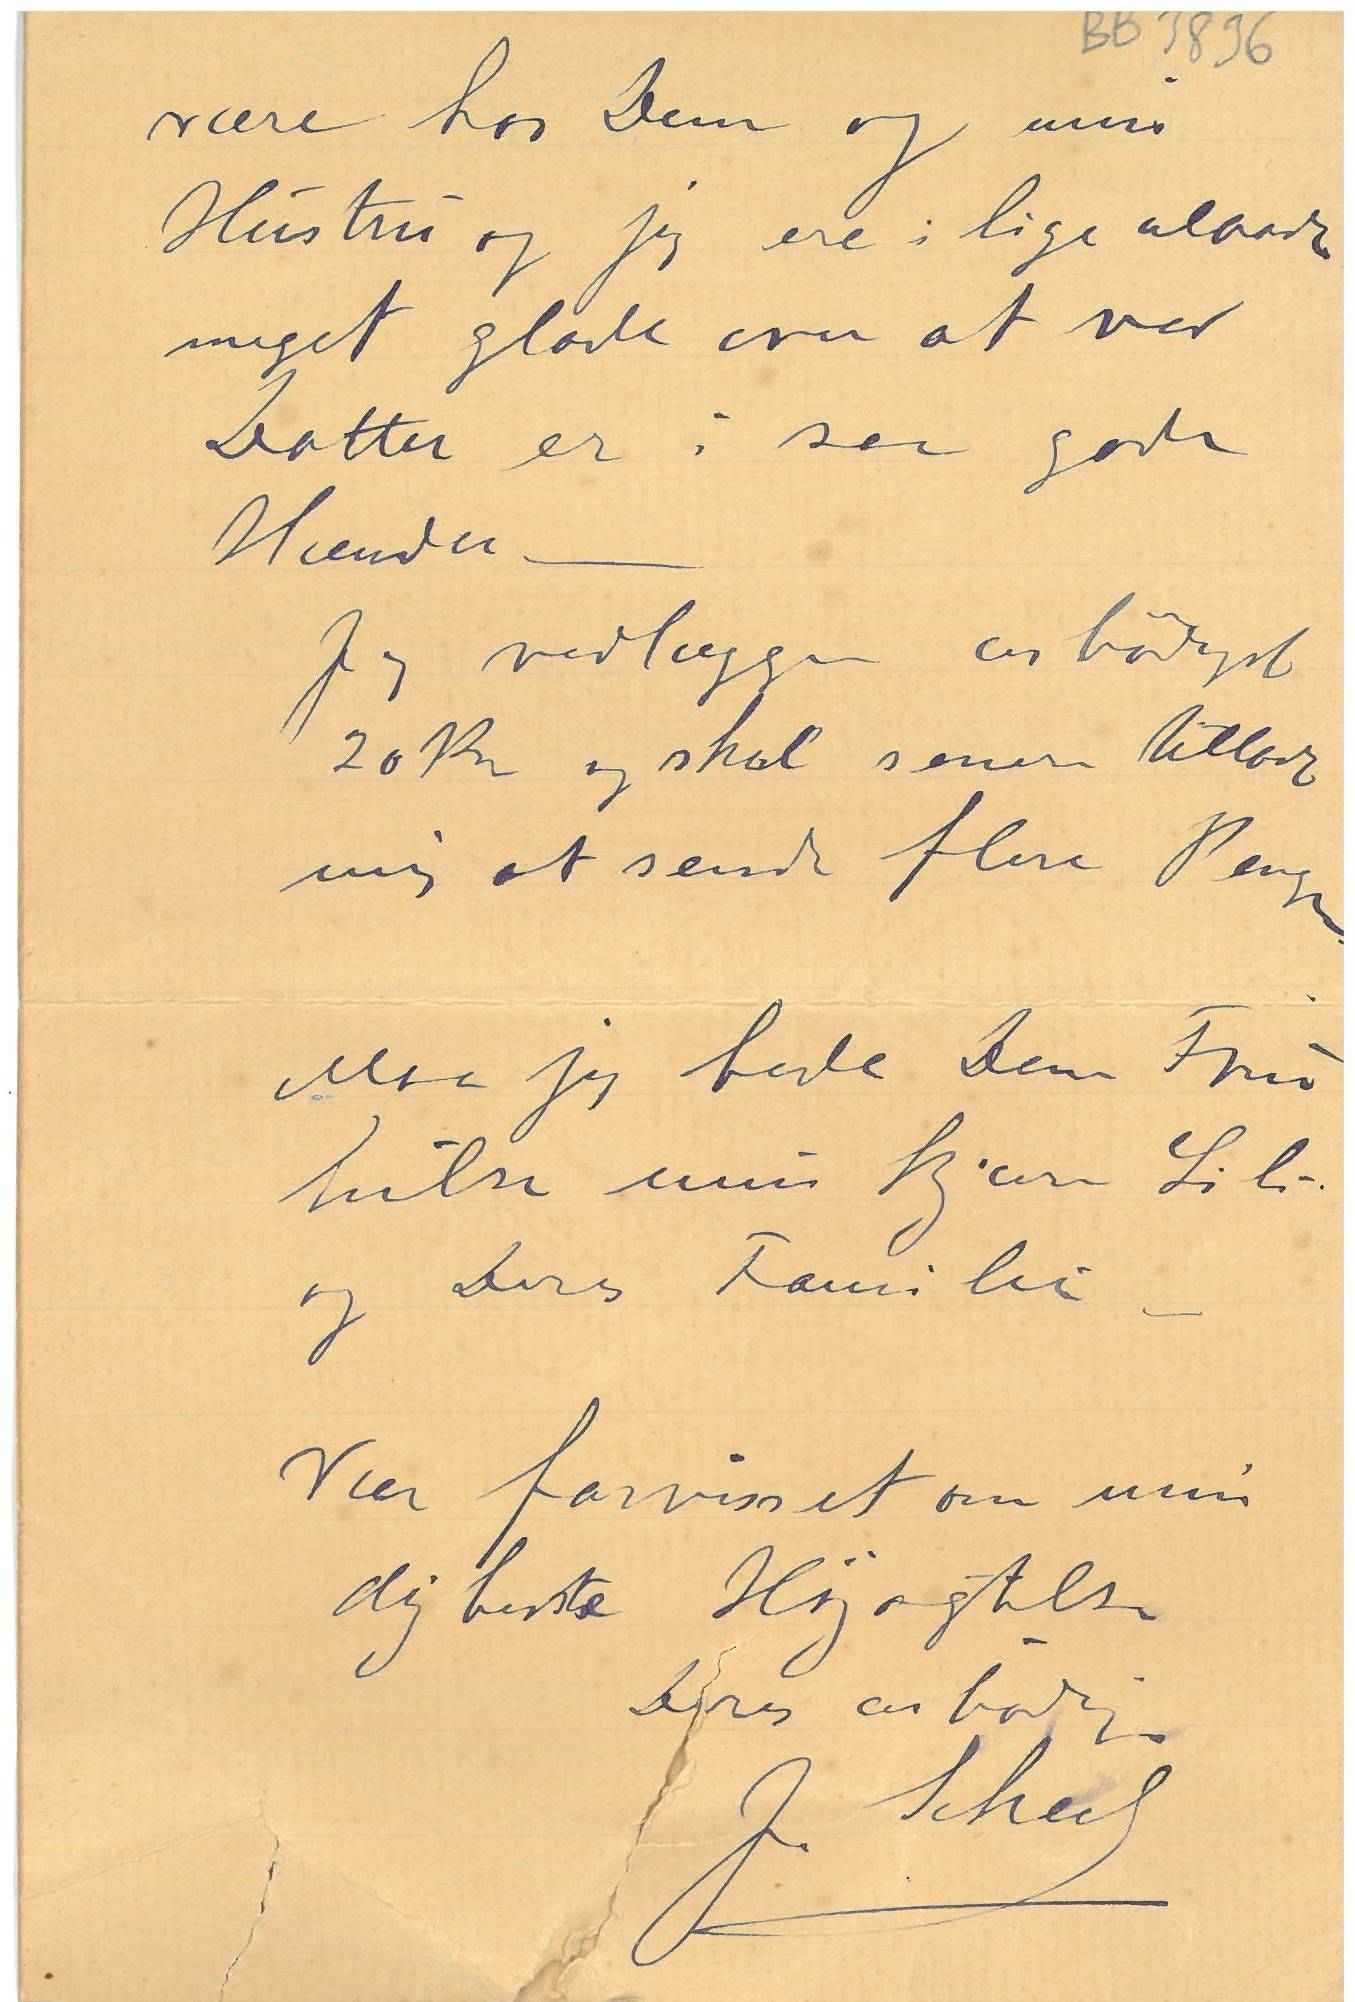 BB 3896
være hos Dem og min
Hustru og jeg ere i lige
meget glade over at
Datter er i saa gode
Hænder —
Jeg vedlægger ærbödigst
20 Kr og skal senere tillade
mig at sende flere Penge
Maa jeg bede Dem Frue
hilse min kjære Lili
og Deres Familie —
Vær forvisset om min
dybeste Höjagtelse
Deres ærbödige
J.